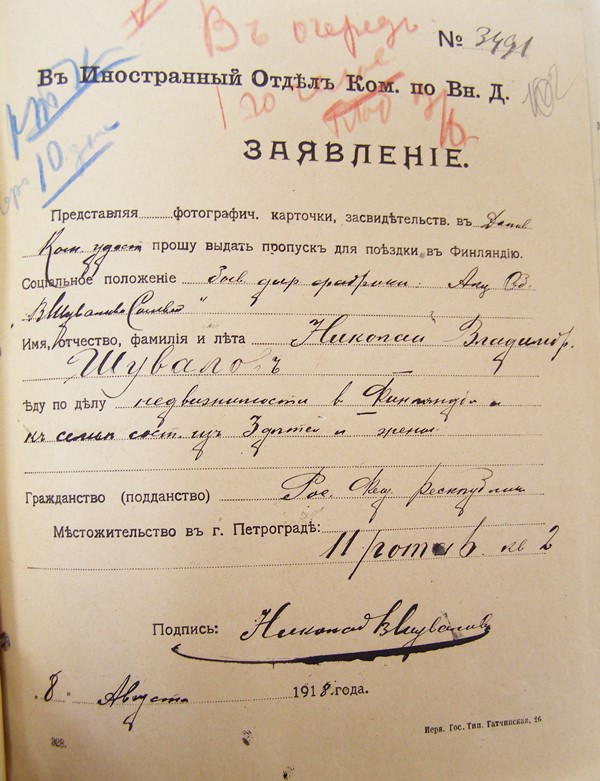 Въ очередь
№ 3491
Въ Иностранный Отдѣлъ Ком. по Вн. Д.
102
10
ЗАЯВЛЕНІЕ.
Представляя фотографич. карточки, засвидѣтельств. въ
Ком прошу выдать пропускъ для поѣздки въ Финляндію.
Соціальное положеніе фабрики. Акц Об.
Имя, отчество, фамилія и лѣта Николай Владимир.
Шуваловъ
ѣду по дѣлу недвижимости в Финляндіи и
къ семьи сост. изъ 3 дѣтей и жены
Гражданство (подданство) Рос. Фед. республики
Мѣстожительство въ г. Петроградѣ:
11 рота 6. кв 2
Подпись: Николай В Шувалов
8 Августа 1918. года.
Иерв. Гос. Тип. Гатчинская, 26